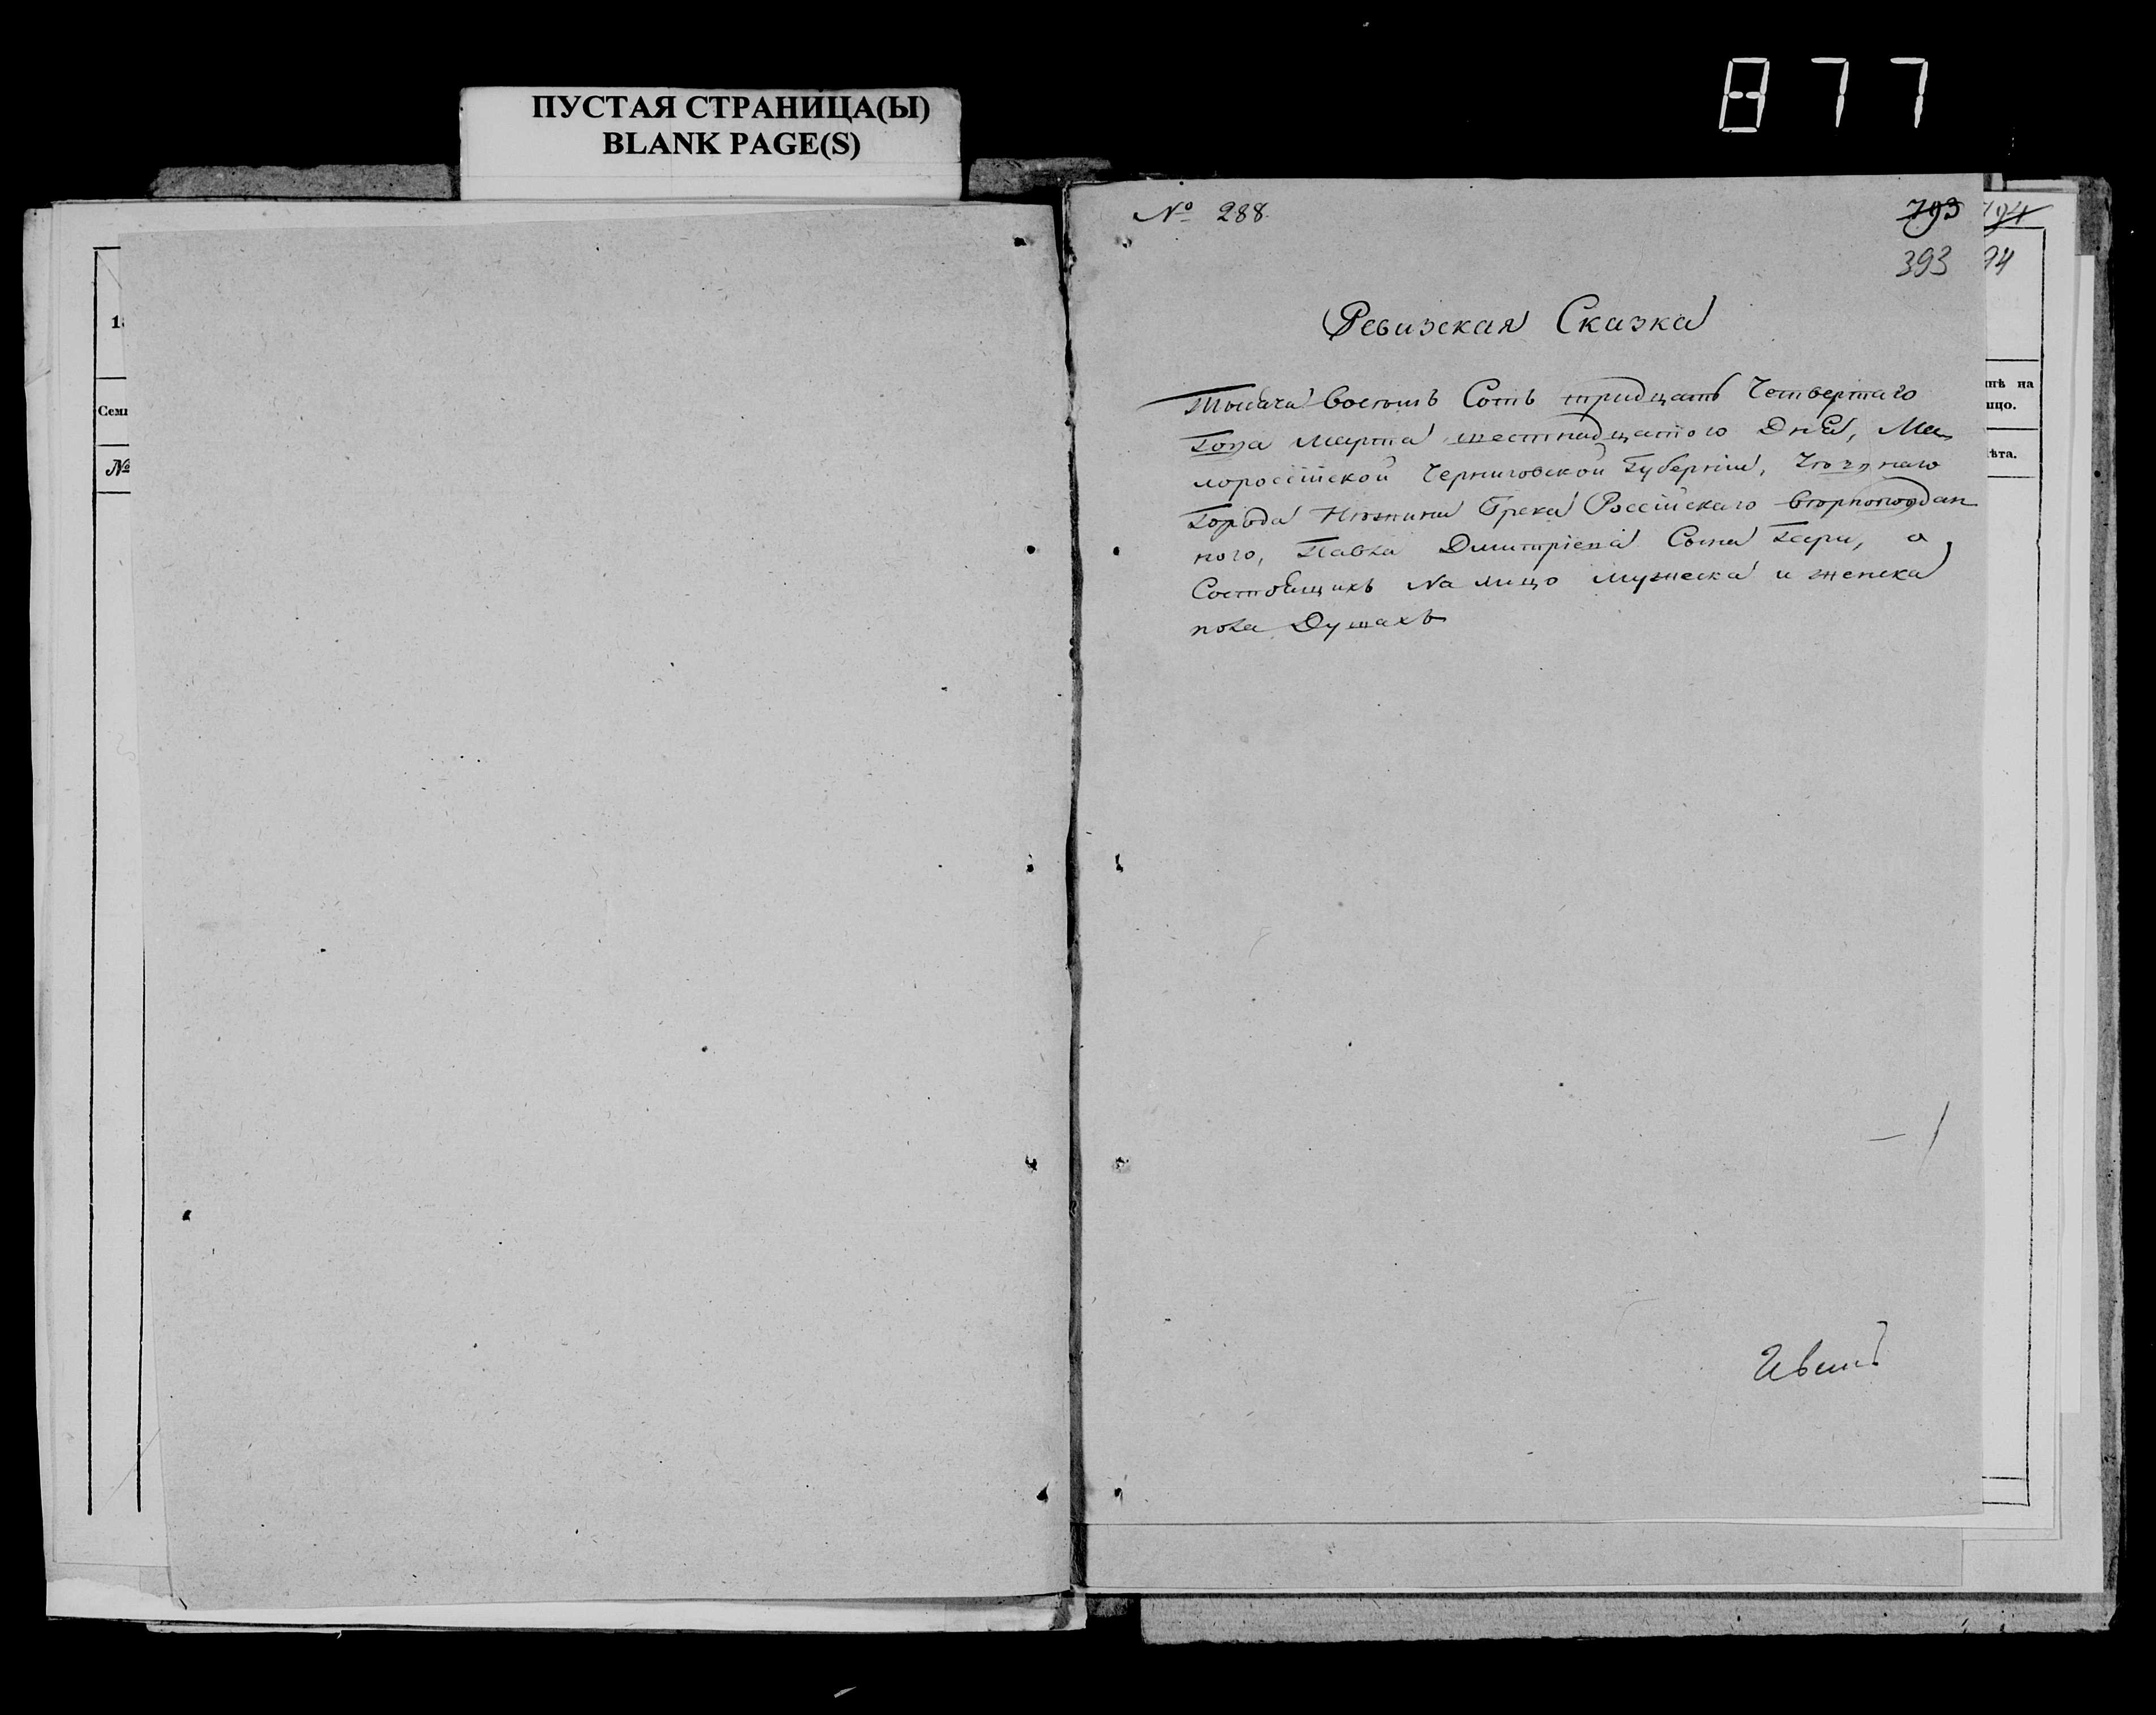 877
ПУСТАЯ СТРАНИЦА(Ы)
BLANK PAGE(S)
№ 288.
793
794
393
94
Ревизская Сказка
Тысяча восемь Сотъ тридцать Четвертаго
Года Марта шестнадцатого Дня, Ма-
лоросійской Черниговской Губерніи,
Города Нѣжина Грека Россійскаго вѣрноподдан
ного, Павла Дмитріева Сына Гари, о
Состоящихъ На лицо мужеска и женска
пола Душахъ
1
Семи
№
инѣ на
ицо.
ѣта.